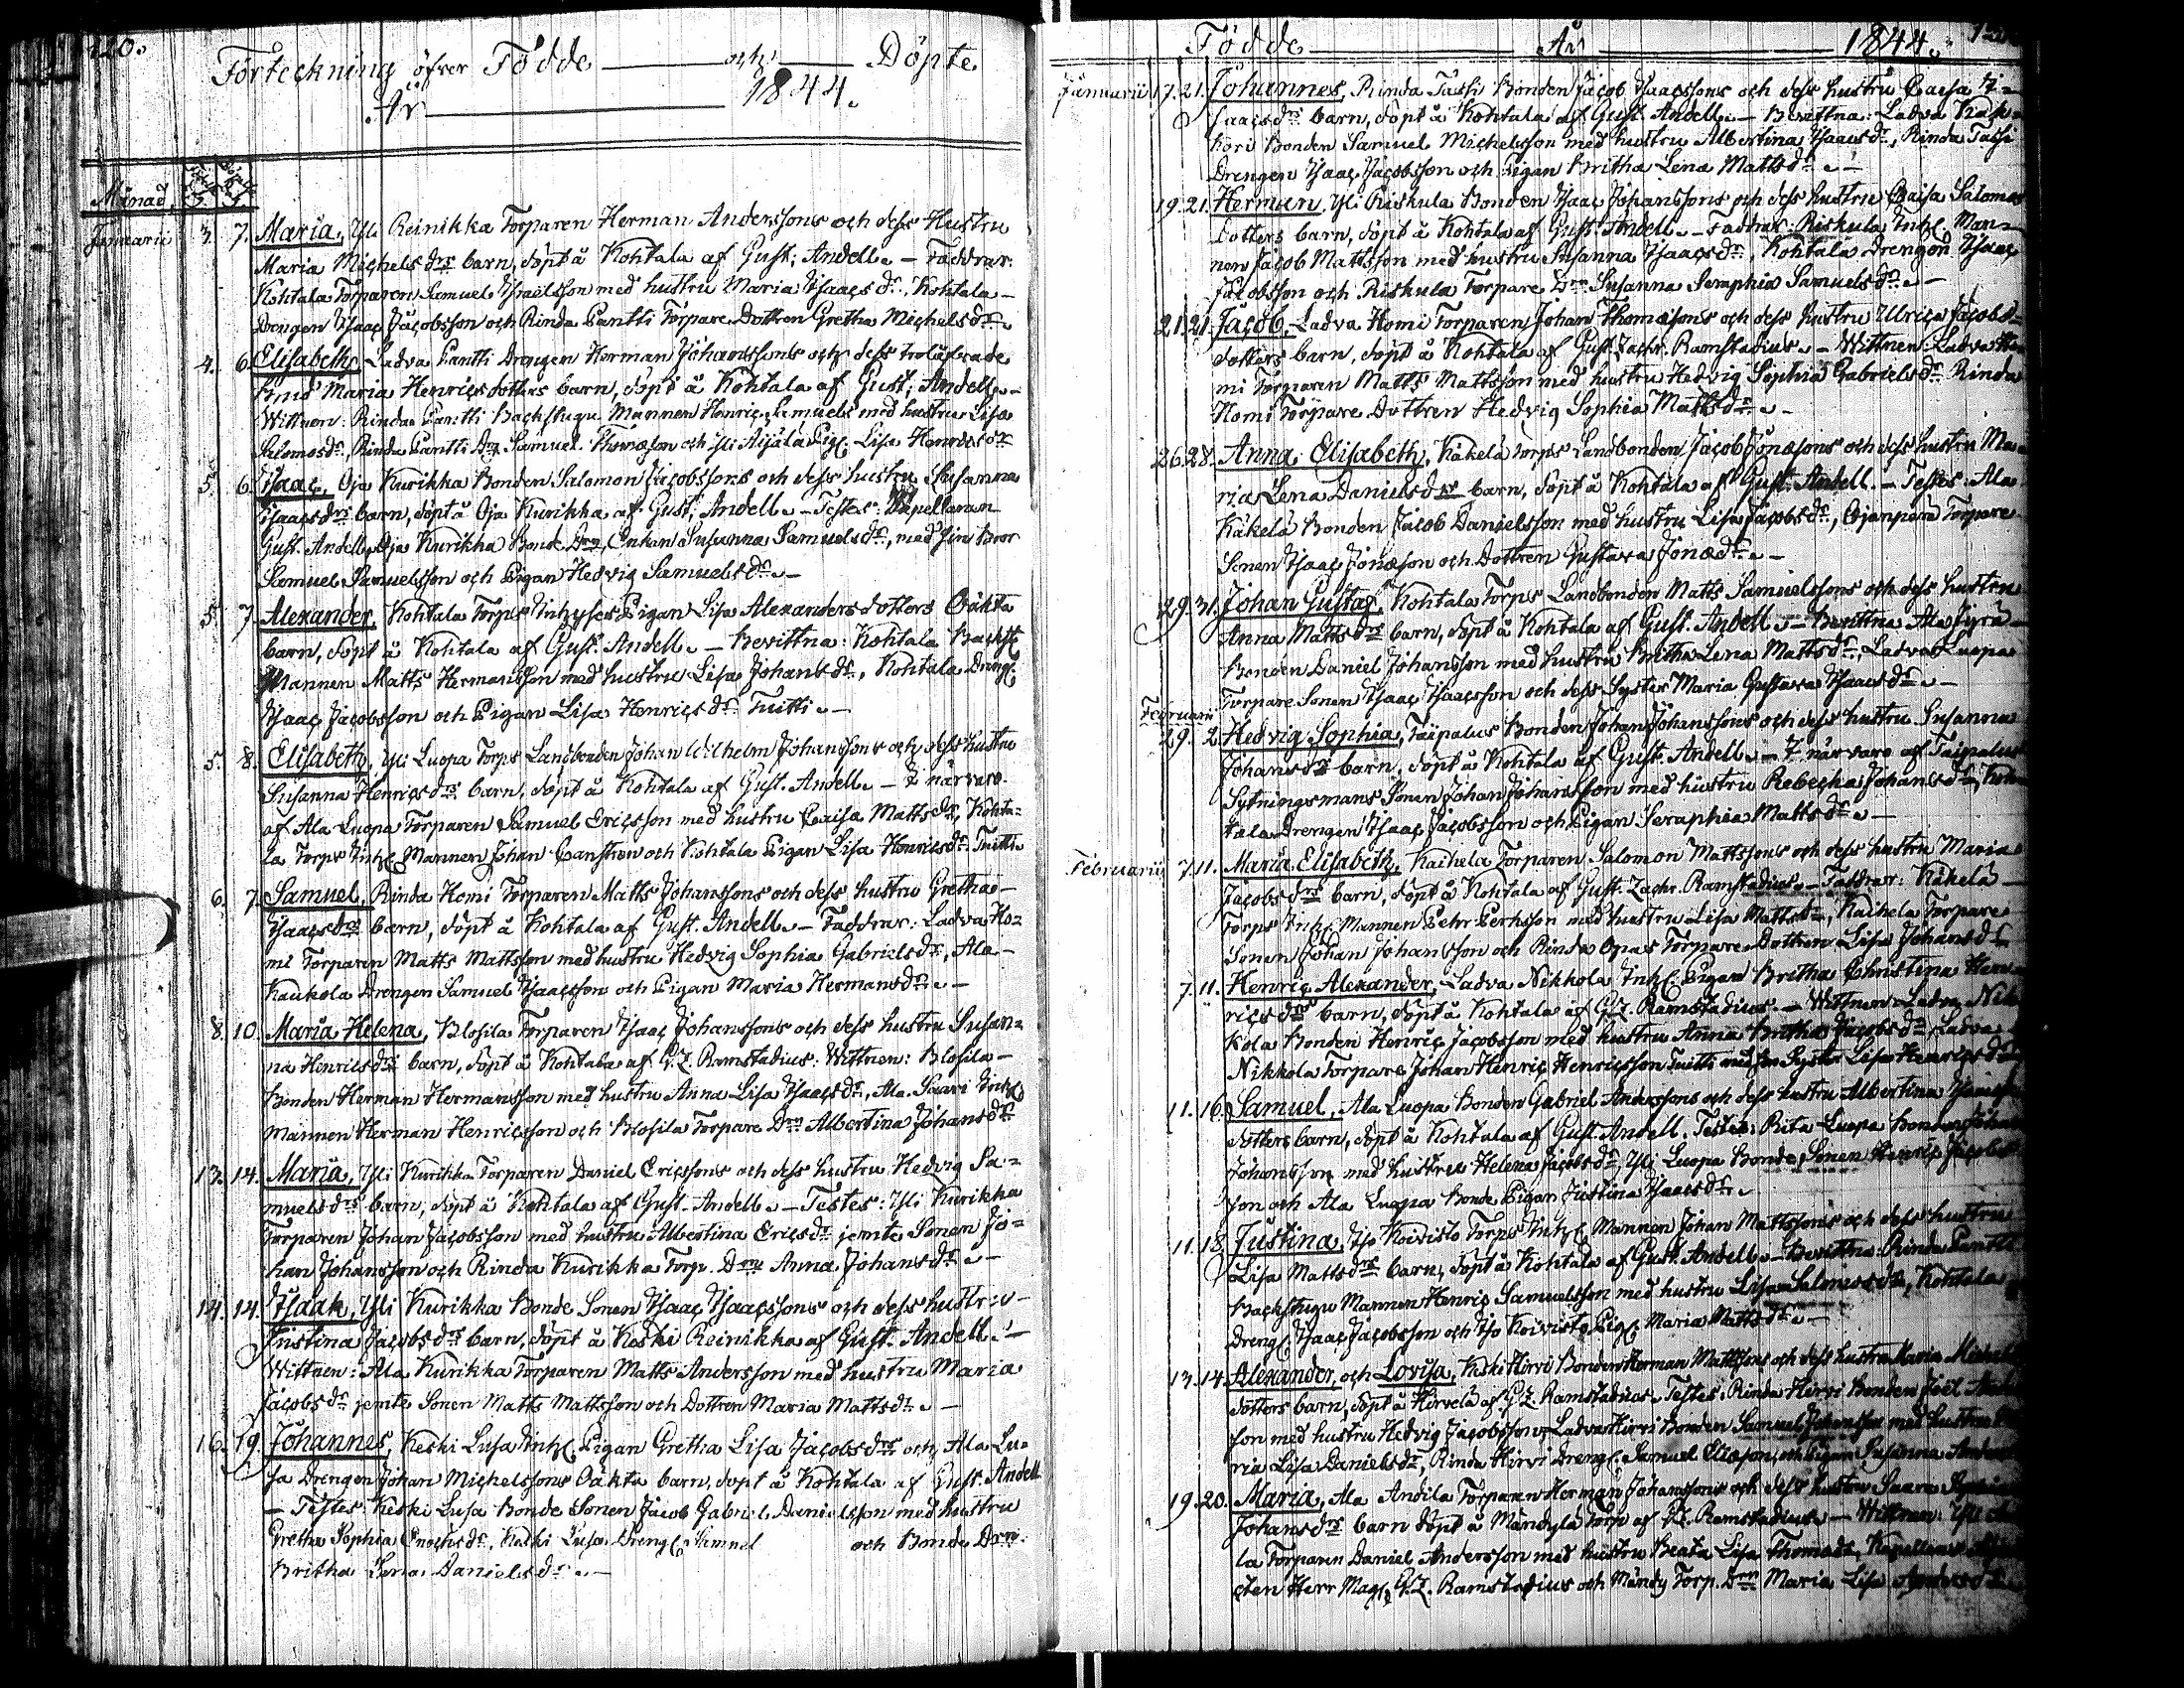 120.
Förteckning öfver Födde och Döpte
År 1844.
Månad
Januarii 3. 7. Maria, Yli Reinikka Torparen Herman Anderssons och dess Hustru
Maria Michelsdrs barn, döpt å Kohtala af Gust. Andell. – Faddrar:
Kohtala Torparen Samuel Israelsson med hustru Maria Isaacsdr, Kohtala
Drengen Isaac Jacobsson och Rinda Pantti Torpare Dottren Gretha Michelsdr.
4. 6. Elisabeth, Ladva Pantti Drengen Herman Johanssons och dess trolåfvade
Brud Maria Henricsdotters barn, döpt å Kohtala af Gust. Andell. –
Wittnen: Rinda Pantti Backstugu Mannen Henric Samuels med hustru Lisa
Salomosdr, Rinda Pantti Drg Samuel Thomasson och Yli Äijälä Pig. Lisa Henricsdr
5. 6. Isaac, Oja Kurikka Bonden Salomon Jacobssons och dess hustru Susanna
Isaacsdrs barn, döpt å Oja Kurikka af Gust. Andell. – Testes: Capellanen
Gust. Andell, Oja Kurikka Bonde Enkan Susanna Samuelsdr, med sin Bror
Samuel Samuelsson och Pigan Hedvig Samuelsdr. –
5. 7. Alexander, Kohtala Torps Inhyses Pigan Lisa Alexandersdotters Oäkta
barn, döpt å Kohtala af Gust. Andell. – Bevittna: Kohtala Backst
Mannen Matts Hermansson med hustru Lisa Johansdr, Kohtala Dreng.
Isaac Jacobsson och Pigan Lisa Henricsdr Tuitti. –
5. 8. Elisabeth, Yli Luopa Torps Landbonden Johan Wilhelm Johanssons och dess hustru
Susanna Henricsdrs barn, döpt å Kohtala af Gust. Andell. – I närvaro
af Ala Luopa Torparen Samuel Ericsson med hustru Caisa Mattsdr, Kohta=
la Torps Inh. Mannen Johan och Kohtala Pigan Lisa Henricsdr Tuitti
6. 7. Samuel, Rinda Homi Torparen Matts Johanssons och dess hustru Gretha
Isaacsdrs barn, döpt å Kohtala af Gust. Andell. – Faddrar: Ladva Ho=
mi Torparen Matts Mattsson med hustru Hedvig Sophia Gabrielsdr, Ala
Kaukola Drengen Samuel Isaacsson och Pigan Maria Hermansdr. –
8. 10. Maria Helena, Blosila Torparen Isaac Johanssons och dess hustru Susan=
na Henricsdrs barn, döpt å Kohtala af G. Z. Ramstadius: Wittnen: Blosila
Bonden Herman Hermansson med hustru Anna Lisa Isaacsdr, Ala Saari Inh.
Mannen Herman Henricsson och Blosila Torpare Drn Albertina Johansdr
13. 14. Maria, Yli Kurikka Torparen Daniel Ericssons och dess hustru Hedvig Sa=
muelsdrs barn, döpt å Kohtala af Gust. Andell. – Testes: Yli Kurikka
Torparen Johan Jacobsson med hustru Albertina Ericsdr jemte Sonen Jo=
han Johansson och Rinda Kurikka Torp. Drn Anna Johansdr. –
14. 14. Isaak, Yli Kurikka Bonde Sonen Isaac Isaacssons och dess hustru
Justina Jacobsdrs barn, döpt å Keski Reinikka af Gust. Andell. –
Wittnen: Ala Kurikka Torparen Matts Andersson med hustru Maria
Jacobsdr jemte Sonen Matts Mattsson och Dottren Maria Mattsdr. –
16. 19. Johannes, Keski Lusa Inh. Pigan Gretha Lisa Jacobsdrs och Ala Lu=
sa Drengen Johan Michelssons Oäkta barn, döpt å Kohtala af Gust. Andell
– Testes: Keski Lusa Bonde Sonen Jacob Gabriel Danielsson med hustru
Gretha Sophia Enochsdr, Keski Lusa Dreng. Samuel och Bonde Drn
Britha Lena Danielsdr. –
Födde År 1844.
Januarii 17. 21. Johannes, Rinda Tassi Bonden Jacob Isaacssons och dess hustru Caisa I=
saacsdrs barn, döpt å Kohtala af Gust. Andell. – Bevittna: Ladva
Bonden Samuel Michelsson med hustru Albertina Isaacsdr, Rinda Tassi
Drengen Isaac Jacobsson och Pigan Britha Lena Mattsdr. –
19. 21. Herman, Yli Riskula Bonden Isaac Johanssons och dess hustru Caisa Salomos
Dotters barn, döpt å Kohtala af Gust. Andell. – Faddrar: Riskula Inh. Man=
nen Jacob Mattsson med hustru Susanna Isaacsdr, Kohtala Drengen Isaac
Jacobsson och Riskula Torpare Drn Susanna Seraphia Samuelsdr. –
21. 21. Jacob, Ladva Homi Torparen Johan Thomassons och dess hustru Ulrica Jacobs=
dotters barn, döpt å Kohtala af Gust. Zachr. Ramstadius. – Wittnen: Ladva Ho
mi Torparen Matts Mattsson med hustru Hedvig Sophia Gabrielsdr Rinda
Homi Torpare Dottren Hedvig Sophia Mattsdr. –
26. 28. Anna Elisabeth, Käkelä torps Landbonden Jacob Jonassons och dess hustru Ma
ria Lena Danielsdrs barn, döpt å Kohtala af Gust. Andell. – Testes: Ala
Käkelä Bonden Jacob Danielsson med hustru Lisa Jacobsdr, Ojanperä Torpare
Sonen Isaac Jonasson och Dottren Gustava Jonædr. –
29. 31. Johan Gustaf, Kohtala Torps Landbonden Matts Samuelssons och dess hustru
Anna Mattsdrs barn, döpt å Kohtala af Gust. Andell. – Bevittna Ala Jyrä
Bonden Daniel Johansson med hustru Britha Lena Mattsdr, Ladva Luopa
Torpare Sonen Isaac Isaacsson och dess Syster Maria Gustava Isaacsdr. –
Februarii
29. 2. Hedvig Sophia, Taipalus Bonden Johan Johanssons och dess hustru Susanna
Johansdrs barn, döpt å Kohtala af Gust. Andell. – I närvaro af Taipalus
Sytningsmans Sonen Johan Johansson med hustru Rebecka Johansdr, Koh
tala Drengen Isaac Jacobsson och Pigan Seraphia Mattsdr. –
Februarii 7. 11. Maria Elisabeth, Kaihela Torparen Salomon Mattssons och dess hustru Maria
Jacobsdrs barn, döpt å Kohtala af Gust. Zachr. Ramstadius. – Faddrar: Käkelä
Torps Inh. Mannen Pehr Pehrsson med hustru Lisa Mattsdr, Kaihela Torpare
Sonen Johan Johansson och Rinda Opas Torpare Dottren Lisa Johansdr
7. 11. Henric Alexander, Ladva Nikkola Inh. Pigan Britha Christina Hen
ricsdrs barn, döpt å Kohtala af G. Z. Ramstadius. – Wittnen Ladva Nik
kola Bonden Henric Jacobsson med hustru Anna Britha Jacobsdr, Ladva
Nikkola Torpare Johan Henric Henricsson Tuitti med sin Syster Lisa Henricsdr
11. 16. Samuel, Ala Luopa Bonden Gabriel Anderssons och dess hustru Albertina
dotters barn, döpt å Kohtala af Gust. Andell. Testes: Luopa Bonden
Johansson med hustru Helena Jacobsdr, Yli Luopa Bonde Sonen Henric Jacobs
son och Ala Luopa Bonde Pigan Justina Isaacsdr.
11. 18. Justina, Iso Koivisto Torps Inh. Mannen Johan Mattssons och dess hustru
Lisa Mattsdrs barn, döpt å Kohtala af Gust. Andell. – Bevittna: Rinda Pantti
Backstugu Mannen Henric Samuelsson med hustru Lisa Salomosdr, Kohtala
Dreng. Isaac Jacobsson och Iso Koivisto Pig. Maria Mattsdr. –
13. 14. Alexander, och Lovisa, Keski Hirvi Bonden Herman Mattssons och dess hustru Maria Michels
dotters barn, döpt å Hirvelä af G. Z. Ramstadius. Testes: Rinda Hirvi Bonden
son med hustru Hedvig Jacobsson, Ladva Hirvi Bonden Samuel Johansson med hustru
ria Lisa Danielsdr, Rinda Hirvi Dreng. Samuel Eliasson, och Pigan Susanna
19. 20. Maria, Ala Antila Torparen Herman Johanssons och dess hustru Saara
Johansdrs barn döpt å Mändylä Torp af G. Z. Ramstadius. – Wittnen:
la Torparen Daniel Andersson med hustru Beata Lisa Thomasdr,
Herr Mag. G. Z. Ramstadius och Mändy Torp. Drn Maria Lisa